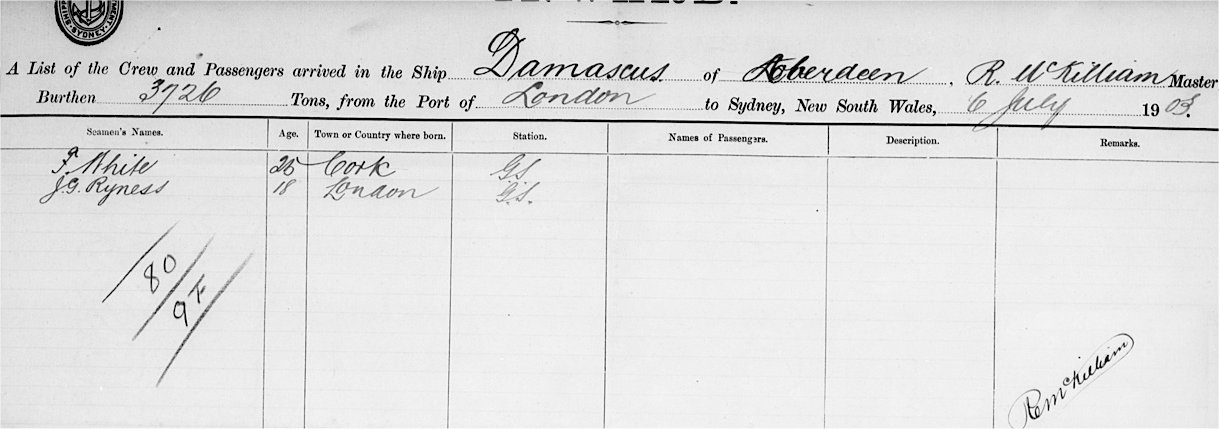 SYDNEY
A List of the Crew and Passengers arrived in the Ship Damascus of Aberdeen, R. McKilliam Master
Burthen 3726 Tons, from the Port of London to Sydney, New South Wales, 6 July 1903.
Seamen's Names. Age. Town or Country where born. Station. Names of Passengers. Description. Remarks.
White Cork GS
J.G. Ryness 18 London G.S.
80
9 F
R McKilliam